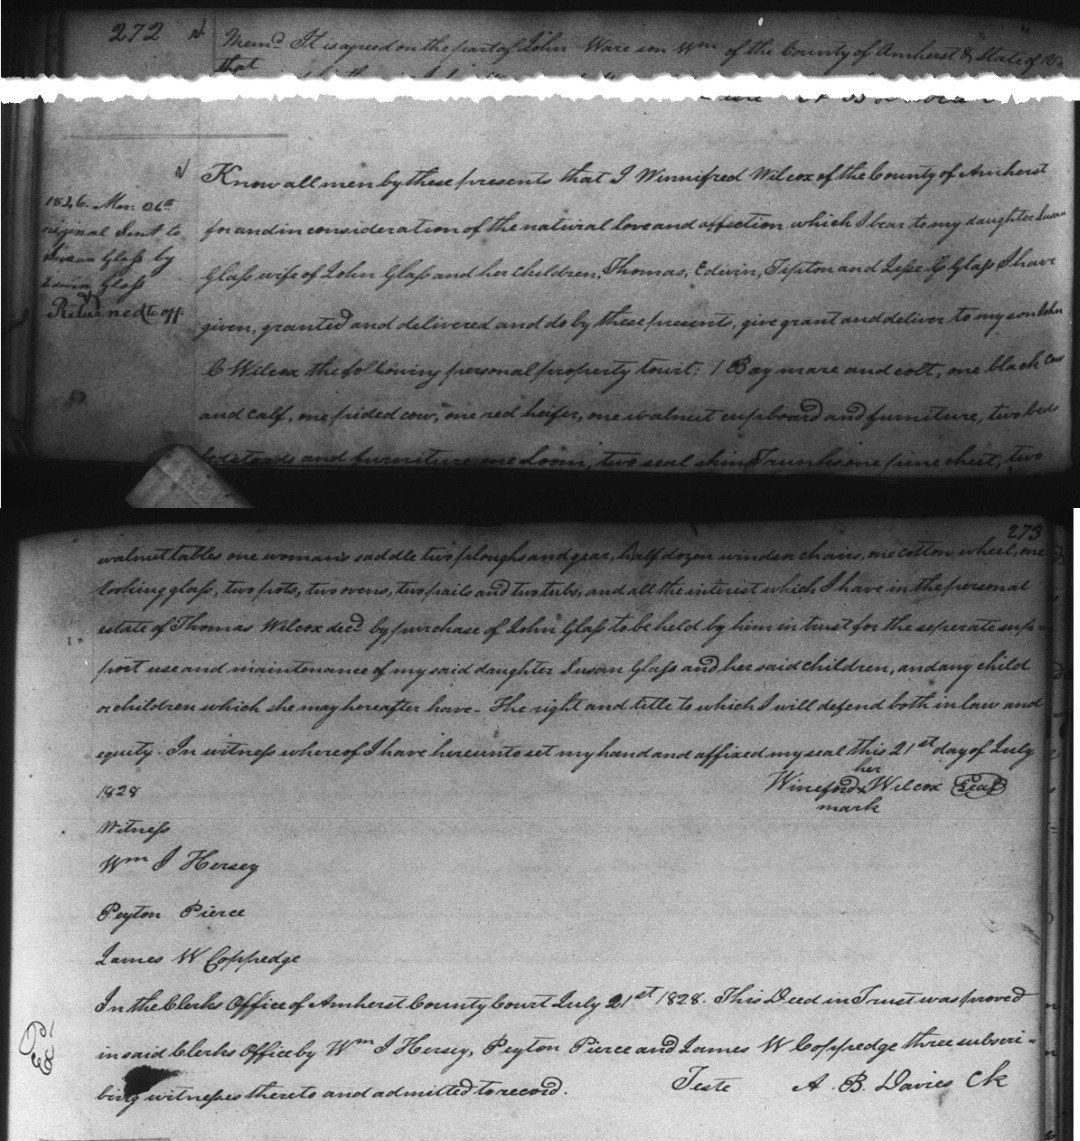 272
Memd. It is agreed on the part of John Ware son Wm of the County of Amherst & State of Va
that
Know all men by these presents that I Winnifred Wilcox of the County of Amherst
for and in consideration of the natural love and affection which I bear to my daughter Susan
Glass wife of John Glass and her children, Thomas, Edwin, Tipton and Jesse G Glass I have
given, granted and delivered and do by these presents, give grant and deliver to my son John
C Wilcox the following personal property towit: 1 Bay mare and colt, one black Cow
and calf, one pided cow, one red heifer, one walnut cupboard and furniture, two beds
bedsteads and furniture one Loom, two seal skin Trunks one pine chest, two
Mar: 26th
original Sent to
Susan Glass by
Edwin Glass
Returned to off.
273
walnut tables one woman's saddle two ploughs and gear, half dozen windsor chairs, one cotton wheel, one
looking glass, two pots, two ovens, two pails and two tubs, and all the interest which I have in the personal
estate of Thomas Wilcox decd. by purchase of John Glass to be held by him in trust for the seperate sup-
port use and maintenance of my said daughter Susan Glass and her said children, and any child
or children which she may hereafter have - The right and title to which I will defend both in law and
equity. In witness whereof I have hereunto set my hand and affixed my seal this 21st day of July
1828
her
Wineford x Wilcox Seal
mark
Witness
Wm J Hersey
Peyton Pierce
James W Coppedge
In the Clerks Office of Amherst County Court July 21st 1828. This Deed in Trust was proved
in said Clerks Office by Wm J Hersey, Peyton Pierce and James W Coppedge three subscri-
bing witnesses thereto and admitted to record.
Teste A. B. Davies Ck
Exd.